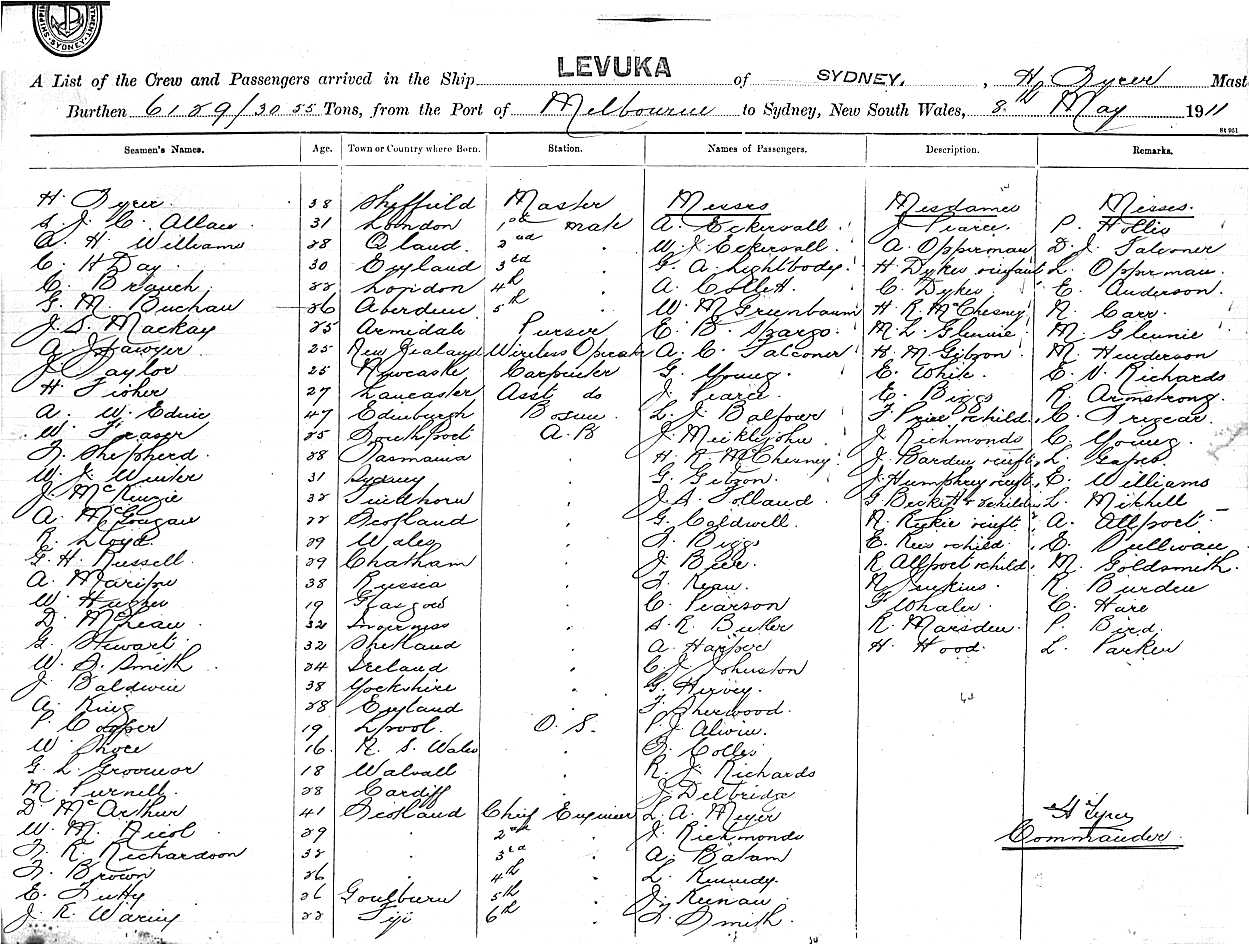 SYDNEY
A List of the Crew and Passengers arrived in the Ship LEVUKA of SYDNEY, H. Mast
Burthen 6129/3055 Tons, from the Port of Melbourne to Sydney, New South Wales, 8th May 1911
St 951
Seamen's Names. Age. Town or Country where Born. Station. Names of Passengers. Description. Remarks.
H. 38 Sheffield Master Messrs Mesdames Misses.
S. J. C. Allan 31 London 1st mate A. Eckersall J. Pearce P. Hollis
A. H. Williams 28 2nd " W. J. Eckersall A. Opperman D. J. Falconer
C. H Day 30 England 3rd " G. A. Lightbody H Dykes & infant L. Opperman
C. Brauch 22 London 4th " A. Collett C. Dykes E. Anderson.
G. M. Buchan 26 Aberdeen 5th " W. M Greenbaum H. R. McChesney N. Carr.
J. S. Mackay 25 Armidale Purser E. B. Spargo. M. L. Glennie M. Glennie
Sawyer 25 New Zealand Wireless Operator A. C. Falconer H. M Gibson M. Henderson
J Taylor 25 Newcastle Carpenter G. Young. E. White. E. V. Richards
H. Fisher 27 Lancaster Asst do J. Pearce E. Biggs R. Armstrong.
A. W. 47 Edinburgh Bosun L. J. Balfour F Price & child C. Tregear.
W. Fraser 25 Southport A. B J. Micklejohn J. Richmonds C. Young.
Shepherd 28 Tasmania " H. R McChesney J. Barden & inft
W. J. Winter 31 Sydney " G. Gibson. J. Humphrey & inft E. Williams
J. McKenzie 32 " J. S. Tolland G. Beckett & 2 children L. Mitchell
A. McGougan 22 Scotland " G. Caldwell. & inft A. Allport
R. Lloyd 29 Wales " Biggs E. Rees & child. E. Sullivan
G. H. Russell 29 Chatham " J. R Allport & child M. Goldsmith.
A. 38 Russia " F. Kean N. Jenkins R. Burden
W. Hughes 19 Glasgow " C. Pearson F Whaler C. Hare
D. McLean 32 Inverness " S. R. Butler R. Marsden P. Bird.
G. Stewart 32 Shetland " A. Harper H. Hood. L. Parker
W. S. Smith 24 Ireland " C. J. Johnston
J. Baldwin 38 Yorkshire " G. Hervey.
A. King 28 England " Sherwood.
P. Cooper 19 L'pool. O. S. P. J. Alwin.
W. 16 N. S. Wales " Colles
G. L. Grosvenor 18 Walsall " R. J. Richards
M. Purnell 28 Cardiff " J. Delbridge
D. McArthur 41 Scotland Chief Engineer L. A. Meyer H Tyrer
W. M. Nicol 29 " 2nd " J. Richmonds Commander.
R. Richardson 32 " 3rd " A. Batam
Brown 26 " 4th " L. Kennedy.
E. Tutty 26 Goulburn 5th " J. Keenan
J. R. Waring 22 Fiji 6th " Smith.